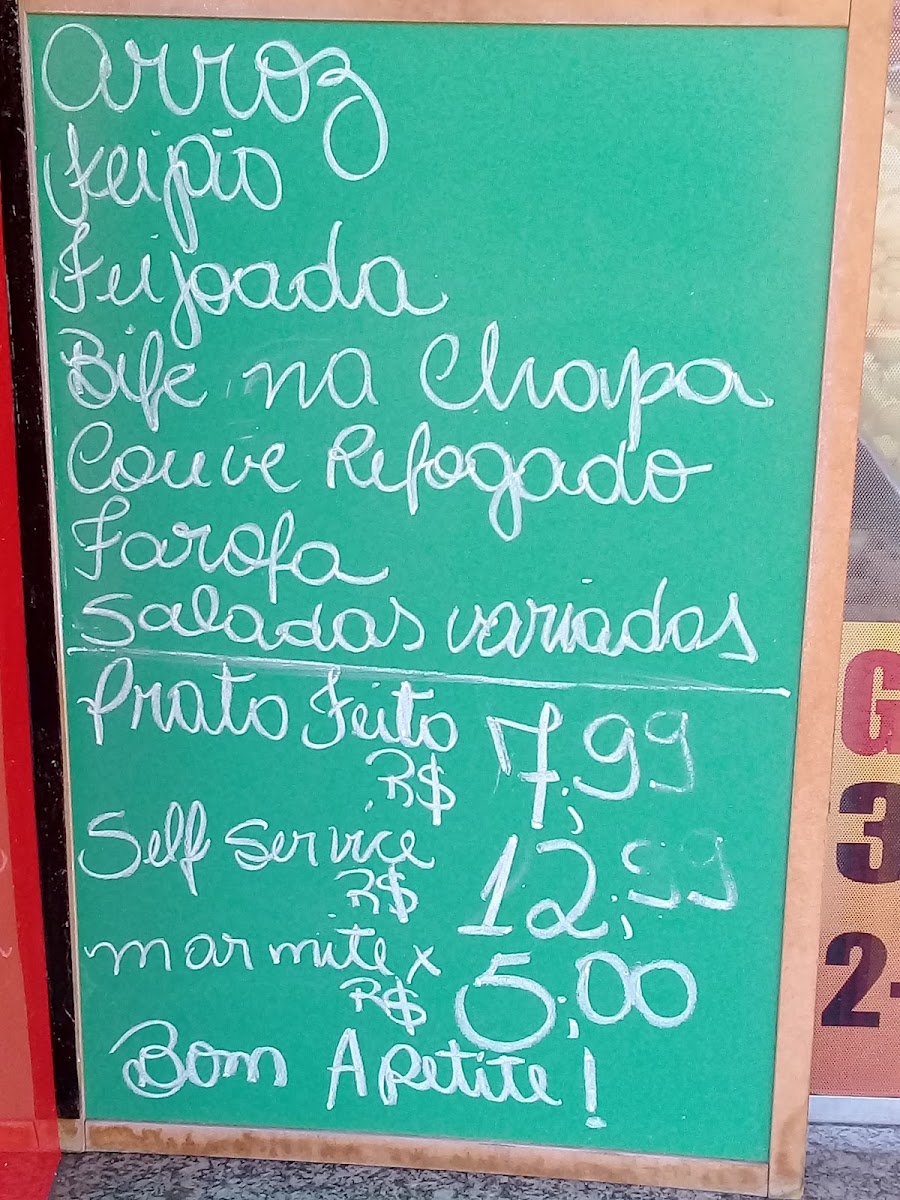 Arroz
Feijão
Feijoada
Bife na Chapa
Couve Refogado
Farofa
Saladas variadas
Prato Feito
R$ 7,99
Self Service
R$ 12,99
marmitex
R$ 5,00
Bom Apetite!
G
3
2-